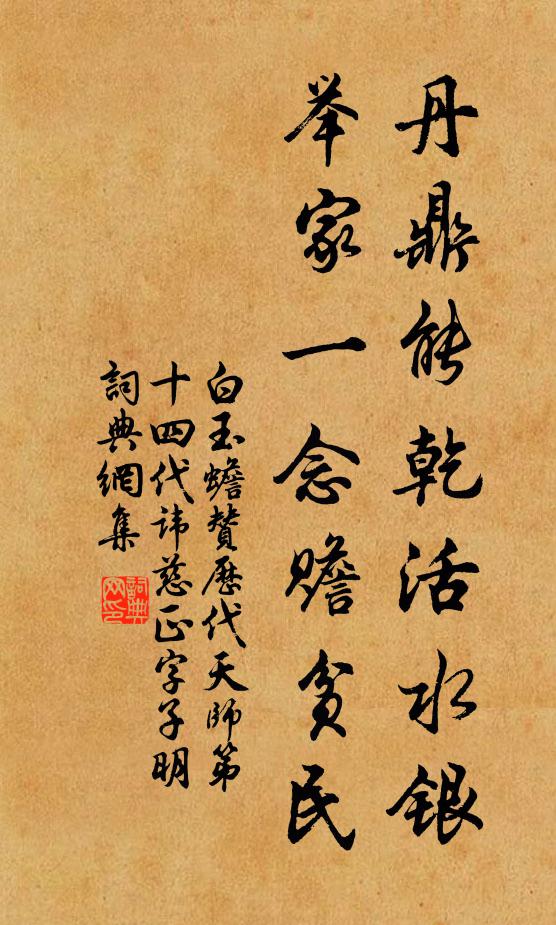 丹鼎能乾活水銀
举家一念赡貧民
白玉蟾贊歷代天師第
十四代諱慈正字子明
詞典網集
詞典
网印